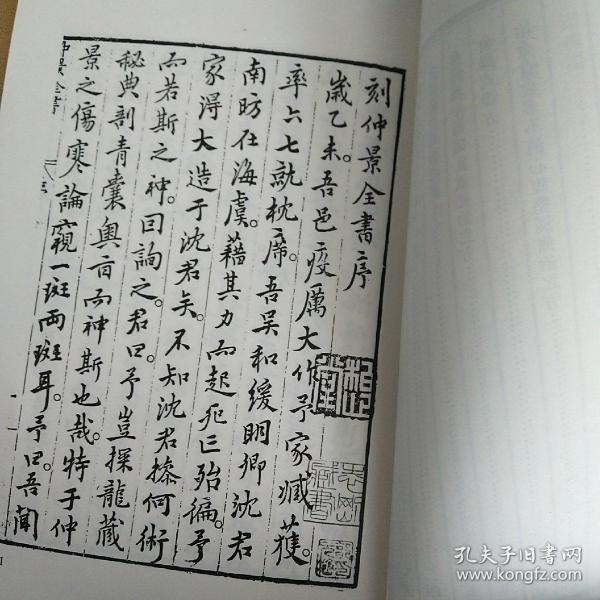 刻仲景全書序
歲乙未。吾邑疫厲大作。予家臧獲。
率六七就枕席。吾吳和緩明卿沈君
南昉在海虞。藉其力而起死亡殆徧。予
家得大造于沈君矣。不知沈君操何術
而若斯之神。因詢之。君曰。予豈探龍藏
秘典剖青囊奧旨而神斯也哉。特于仲
景之傷寒論窺一斑兩斑耳。予曰。吾聞
仲景全書
孔夫子旧书网
www.kongfz.com